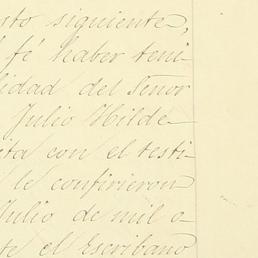 sto siguiente,
fé haber teni-
lidad del Señor
Julio Hilde-
ta con el testi-
le confirieron
Julio de mil o-
te el Escribano